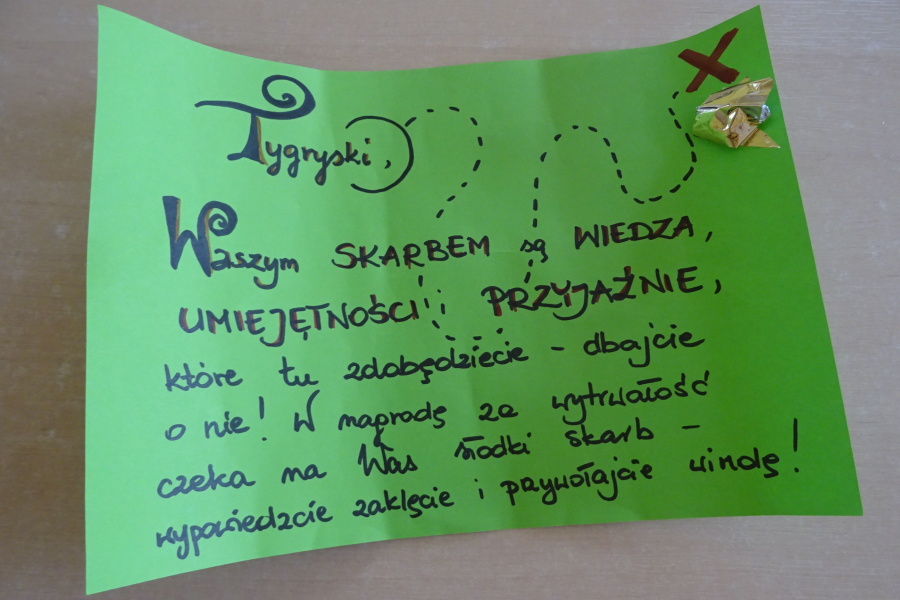 Tygryski,
Waszym SKARBEM są WIEDZA,
UMIEJĘTNOŚCI i PRZYJAŹNIE,
które tu zdobędziecie - dbajcie
o nie! W nagrodę za wytrwałość
czeka na Was słodki skarb -
wypowiedzcie zaklęcie i przywołajcie windę!